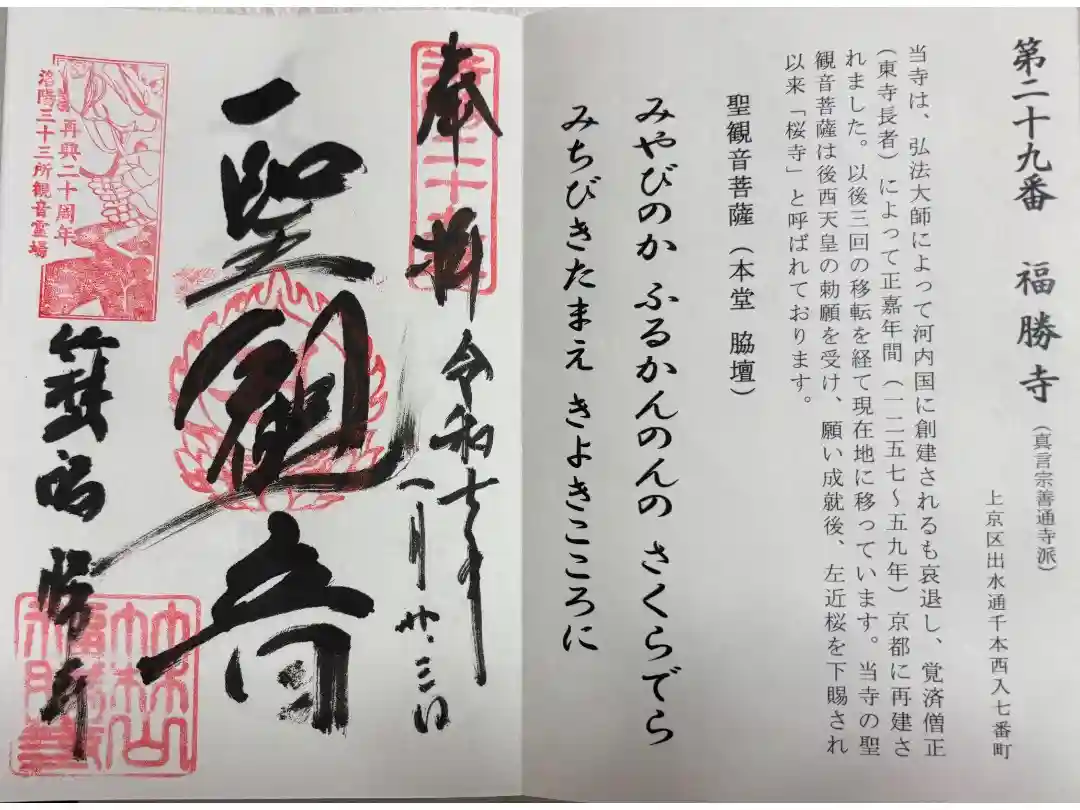 第二十九番　福勝寺（真言宗善通寺派）
上京区出水通千本西入七番町
当寺は、弘法大師によって河内国に創建されるも衰退し、覚済僧正
（東寺長者）によって正嘉年間（一二五七～五九年）京都に再建さ
れました。以後三回の移転を経て現在地に移っています。当寺の聖
観音菩薩は後西天皇の勅願を受け、願い成就後、左近桜を下賜され
以来「桜寺」と呼ばれております。
聖観音菩薩（本堂　脇壇）
みやびのか ふるかんのんの さくらでら
みちびきたまえ きよきこころに
奉拝
令和七年
一月廿三日
聖観音
再興二十周年
洛陽三十三所観音霊場
福勝寺
竹林山
福勝寺